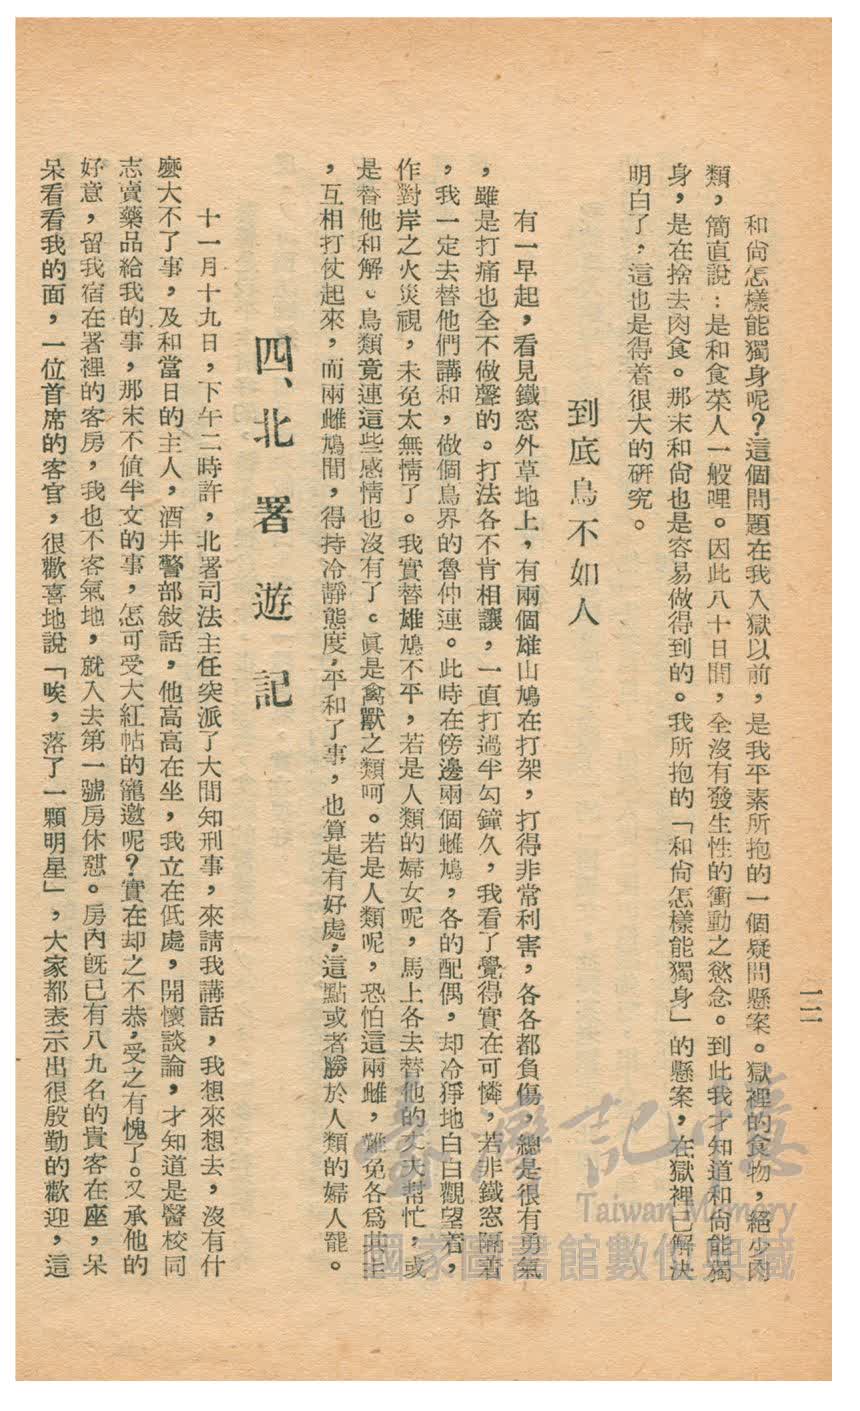 一二
和尙怎樣能獨身呢?這個問題在我入獄以前,是我平素所抱的一個疑問懸案。獄裡的食物,絕少肉
類,簡直說:是和食菜人一般哩。因此八十日間,全沒有發生性的衝動之慾念。到此我才知道和尙能獨
身,是在捨去肉食。那末和尙也是容易做得到的。我所抱的「和尙怎樣能獨身」的懸案,在獄裡已解決
明白了,這也是得着很大的硏究。
到底鳥不如人
有一早起,看見鐵窓外草地上,有兩個雄山鳩在打架,打得非常利害,各各都負傷,總是很有勇氣
,雖是打痛也全不做聲的。打法各不肯相讓,一直打過半勾鐘久,我看了覺得實在可憐,若非鐵窓隔着
,我一定去替他們講和,做個鳥界的魯仲連。此時在傍邊兩個雌鳩,各的配偶,却冷猙地白白觀望着,
作對岸之火災視,未免太無情了。我實替雄鳩不平,若是人類的婦女呢,馬上各去替他的丈夫幫忙,或
是替他和解。鳥類竟連這些感情也沒有了。眞是禽獸之類呵。若是人類呢,恐怕這兩雌,難免各爲其主
,互相打仗起來,而兩雌鳩間,得持冷靜態度,平和了事,也算是有好處,這點或者勝於人類的婦人罷。
四、北署遊記
十一月十九日,下午二時許,北署司法主任突派了大間知刑事,來請我講話,我想來想去,沒有什
麼大不了事,及和當日的主人,酒井警部敍話,他高高在坐,我立在低處,開懷談論,才知道是醫校同
志賣藥品給我的事,那末不値半文的事,怎可受大紅帖的寵邀呢?實在却之不恭,受之有愧了。又承他的
好意,留我宿在署裡的客房,我也不客氣地,就入去第一號房休憇。房內旣已有八九名的貴客在座,呆
呆看看我的面,一位首席的客官,很歡喜地說「唉,落了一顆明星」,大家都表示出很殷勤的歡迎,這
臺灣記憶
Taiwan Memory
國家圖書館數位典藏